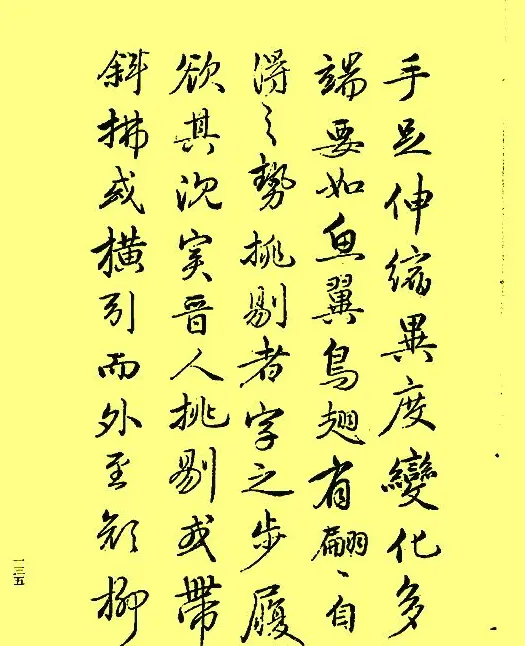 手足伸縮異度變化多
端要如魚翼鳥翅有翩〻自
得之勢挑剔者字之步履
欲其沉實晉人挑剔或帶
斜拂或橫引而外至顏柳
一三五